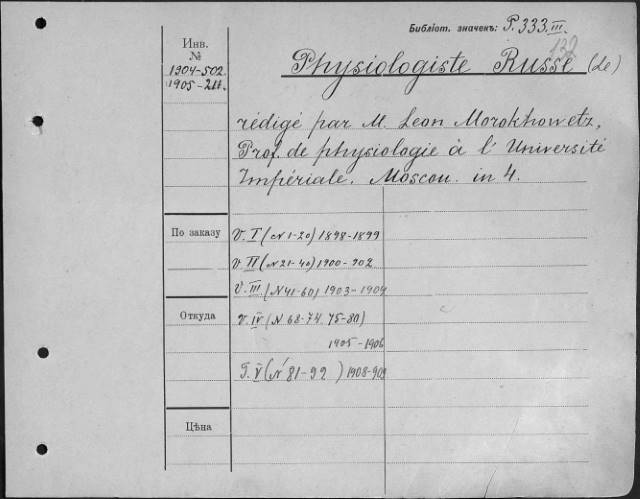 Библіот. значекъ: P.333.III.
132
Инв.
№
1904-502
1905-211.
Physiologiste Russe (le)
rédigé par M. Leon Morokhowetz,
Prof. de physiologie à l' Université
Impériale. Moscou. in 4.
По заказу
V. I (№ 1-20) 1898-1899
V. II (№ 21-40) 1900-902
V. III (№ 41-60) 1903-1904
Откуда
V. IV (№ 68-74. 75-80)
1905-1906
T. V (№ 81-92) 1908-909
Цѣна